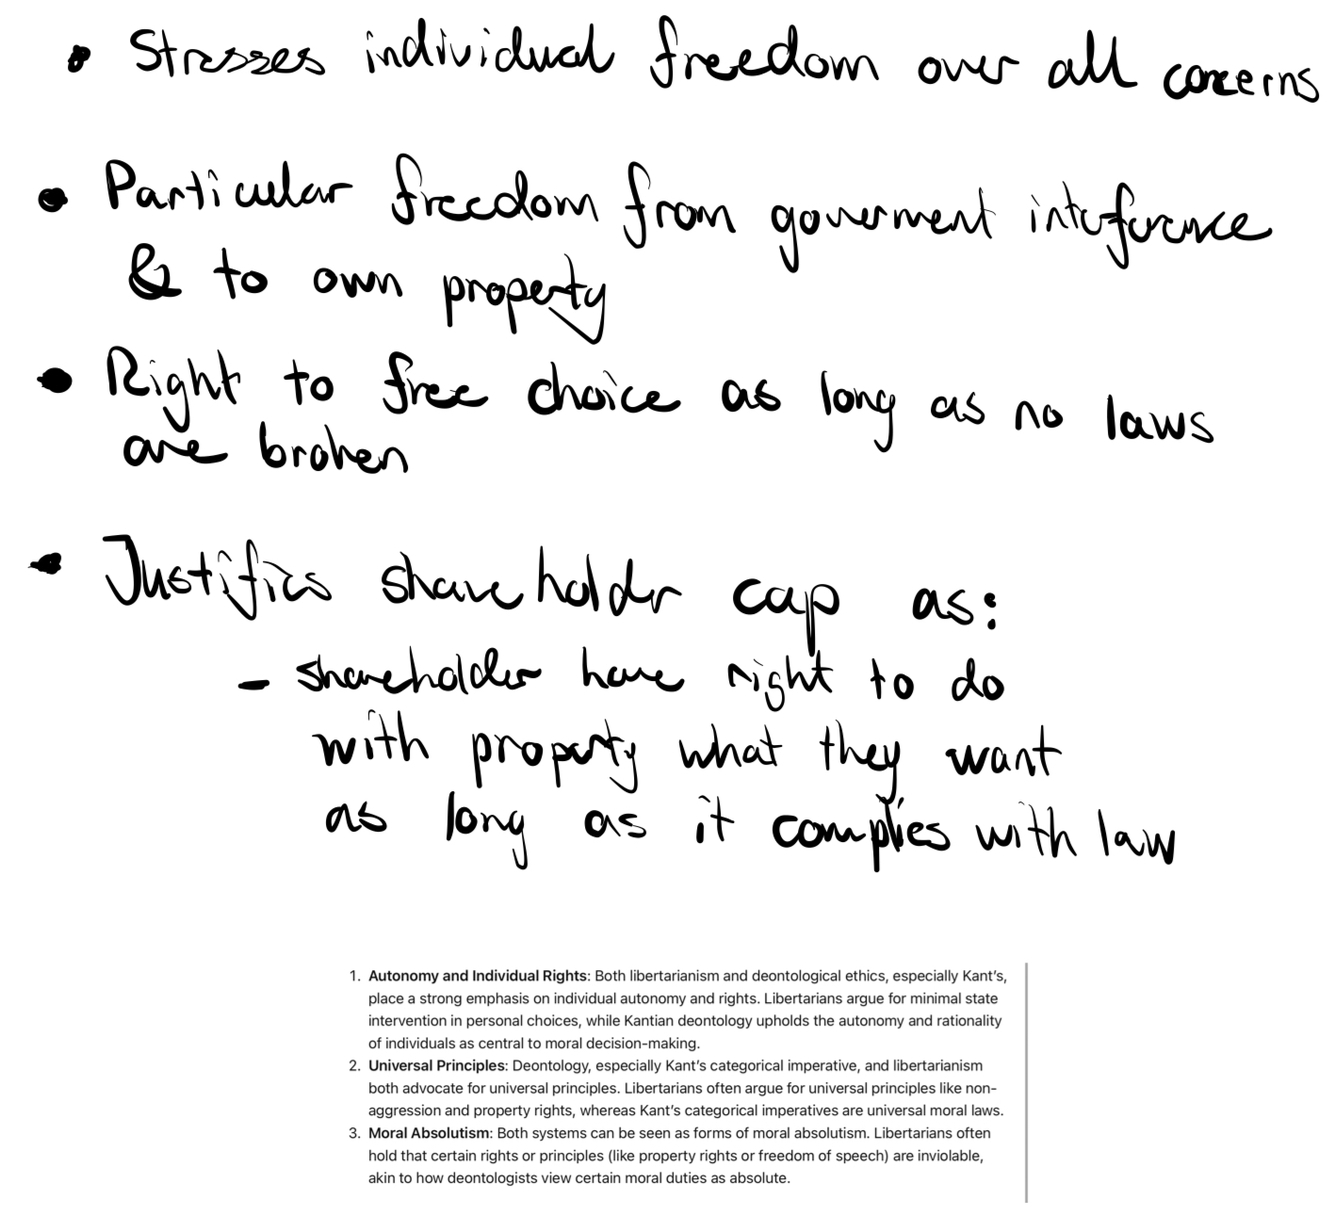 • Stresses individual freedom over all concerns
• Particular freedom from goverment interference
& to own property
• Right to free choice as long as no laws
are broken
• Justifies shareholder cap as:
- shareholder have right to do
with property what they want
as long as it complies with law
1. Autonomy and Individual Rights: Both libertarianism and deontological ethics, especially Kant's,
place a strong emphasis on individual autonomy and rights. Libertarians argue for minimal state
intervention in personal choices, while Kantian deontology upholds the autonomy and rationality
of individuals as central to moral decision-making.
2. Universal Principles: Deontology, especially Kant's categorical imperative, and libertarianism
both advocate for universal principles. Libertarians often argue for universal principles like non-
aggression and property rights, whereas Kant's categorical imperatives are universal moral laws.
3. Moral Absolutism: Both systems can be seen as forms of moral absolutism. Libertarians often
hold that certain rights or principles (like property rights or freedom of speech) are inviolable,
akin to how deontologists view certain moral duties as absolute.